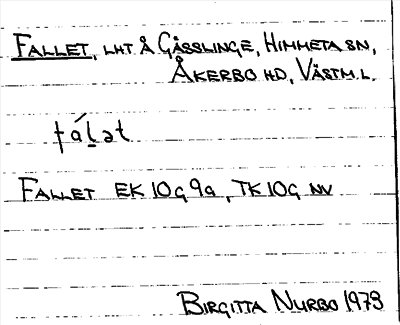 FALLET, LHT Å GÄSSLINGE, HIMMETA SN,
ÅKERBO HD, VÄSTM.L.
fáḻət
FALLET EK 10G 9a, TK 10G NV
BIRGITTA NURBO 1973